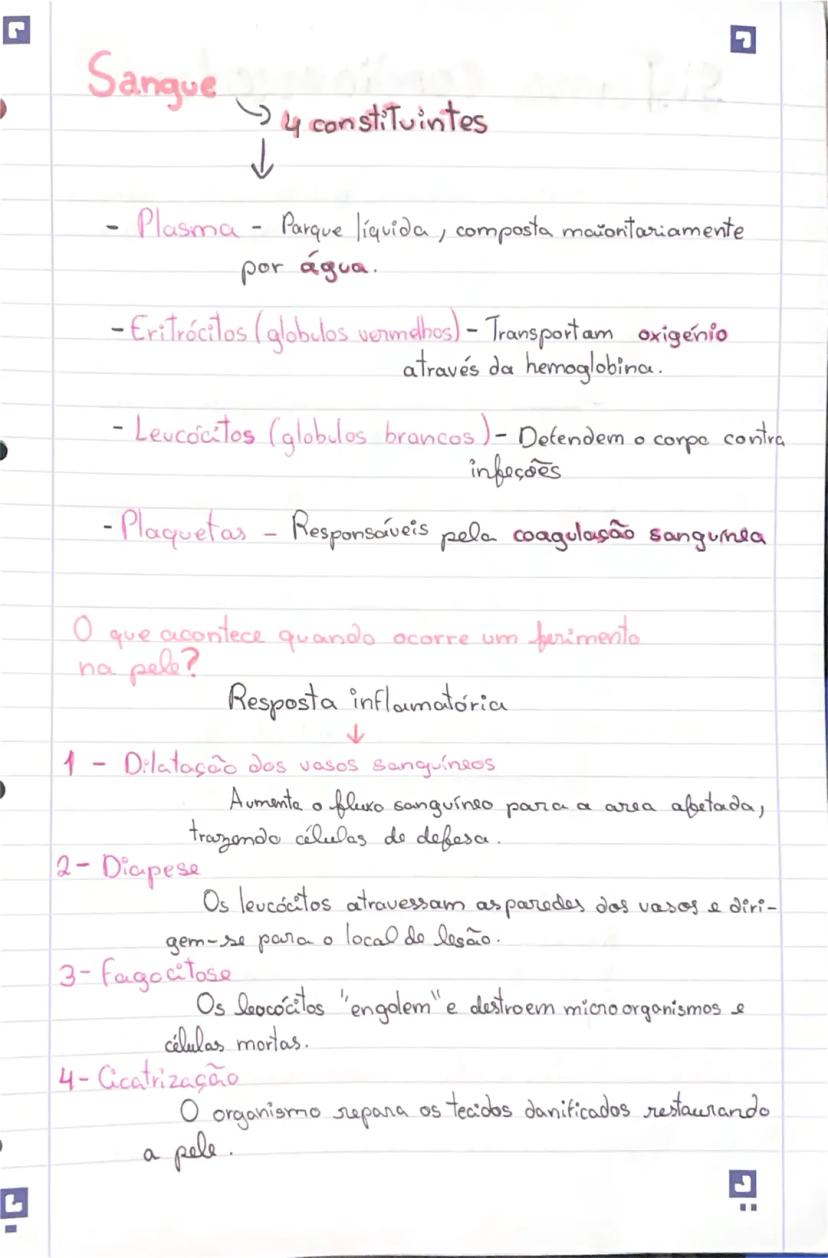 Sangue
4 constituintes
- Plasma - Parque líquida, composta maioritariamente
por água.
- Eritrócitos (glóbulos vermelhos) - Transportam oxigénio
através da hemoglobina.
- Leucócitos (glóbulos brancos) - Defendem o corpo contra
infeções
- Plaquetas - Responsáveis pela coagulação sanguínea
O que acontece quando ocorre um ferimento
na pele?
Resposta inflamatória
1 - Dilatação dos vasos sanguíneos
Aumenta o fluxo sanguíneo para a area afetada,
trazendo células de defesa.
2- Diapese
Os leucócitos atravessam as paredes dos vasos e diri-
gem-se para o local de lesão.
3- Fagocitose
Os leocócitos "engolem" e destroem micro organismos e
células mortas.
4- Cicatrização
O organismo repara os tecidos danificados restaurando
a pele.